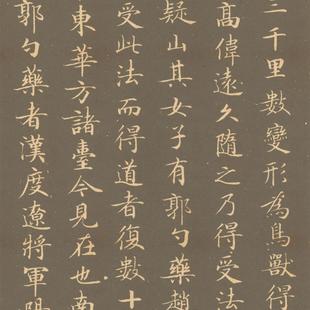 三千里數變形為鳥獸得
高偉遠久隨之乃得受法
疑山其女子有郭勺藥趙
受此法而得道者復數十
東華方諸臺今見在也南
郭勺藥者漢度遼將軍陽